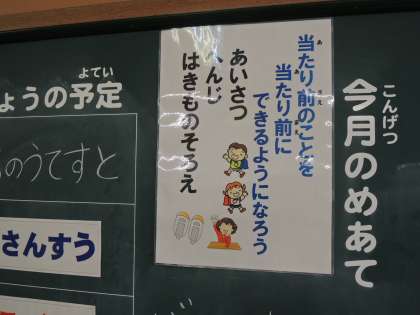 こんげつ
今月のめあて
あ まえ
当たり前のことを
あ まえ
当たり前に
できるようになろう
あいさつ
へんじ
はきものそろえ
よてい
ょうの予定
のうてすと
さんすう